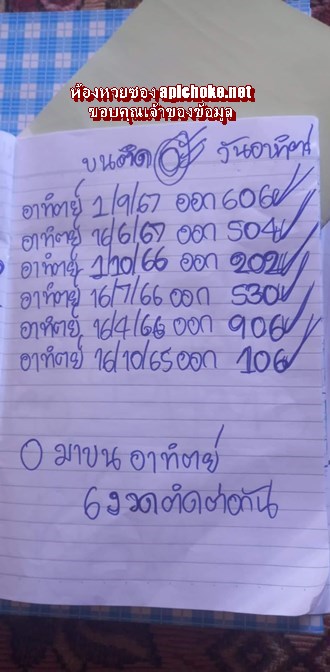 ห้องหวยซอง apichoke.net
ขอบคุณเจ้าของข้อมูล
บนติด 0 วันอาทิตย์
อาทิตย์ 1/9/67 ออก 606
อาทิตย์ 16/6/67 ออก 504
อาทิตย์ 1/10/66 ออก 202
อาทิตย์ 16/7/66 ออก 530
อาทิตย์ 16/4/66 ออก 906
อาทิตย์ 16/10/65 ออก 106
0 มาบน อาทิตย์
6 งวดติดต่อกัน